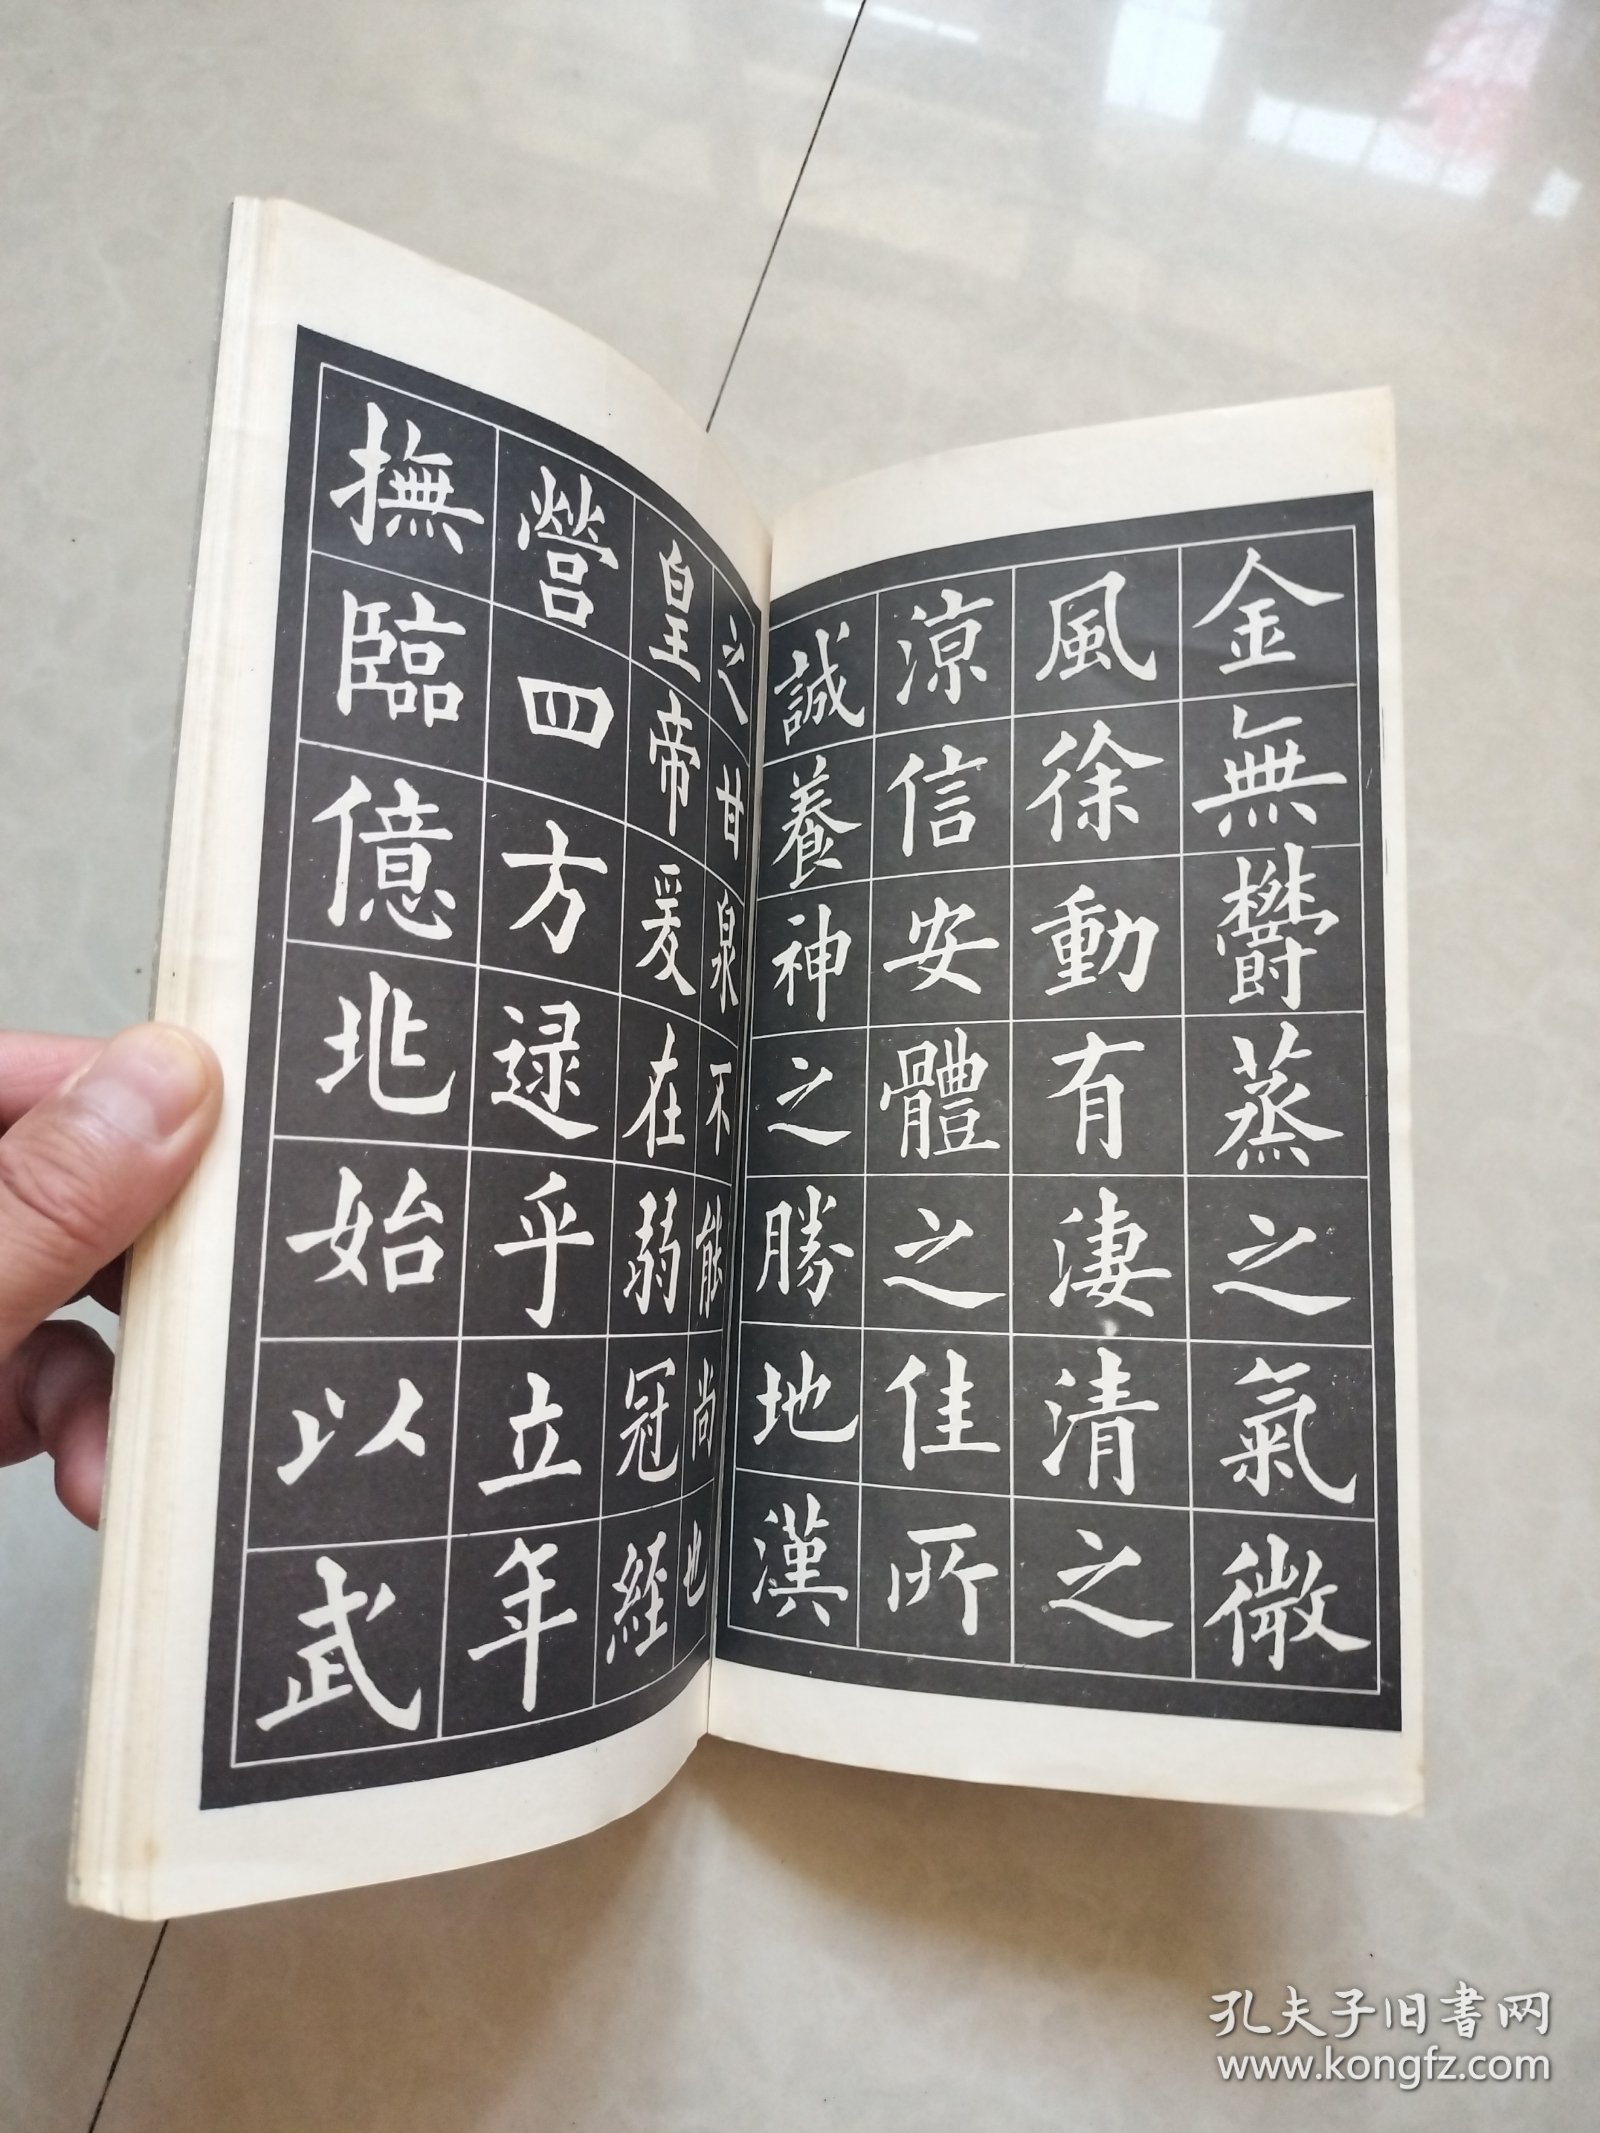 金無鬱蒸之氣微
風徐動有淒清之
涼信安體之佳所
誠養神之勝地漢
之甘泉不能尚也
皇帝爰在弱冠經
營四方逯乎立年
撫臨億兆始以武
孔夫子旧书网
www.kongfz.com